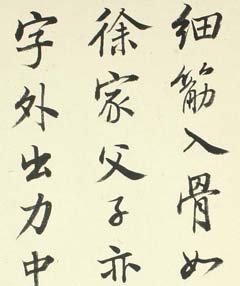 细筋入骨如
徐家父子亦
字外出力中